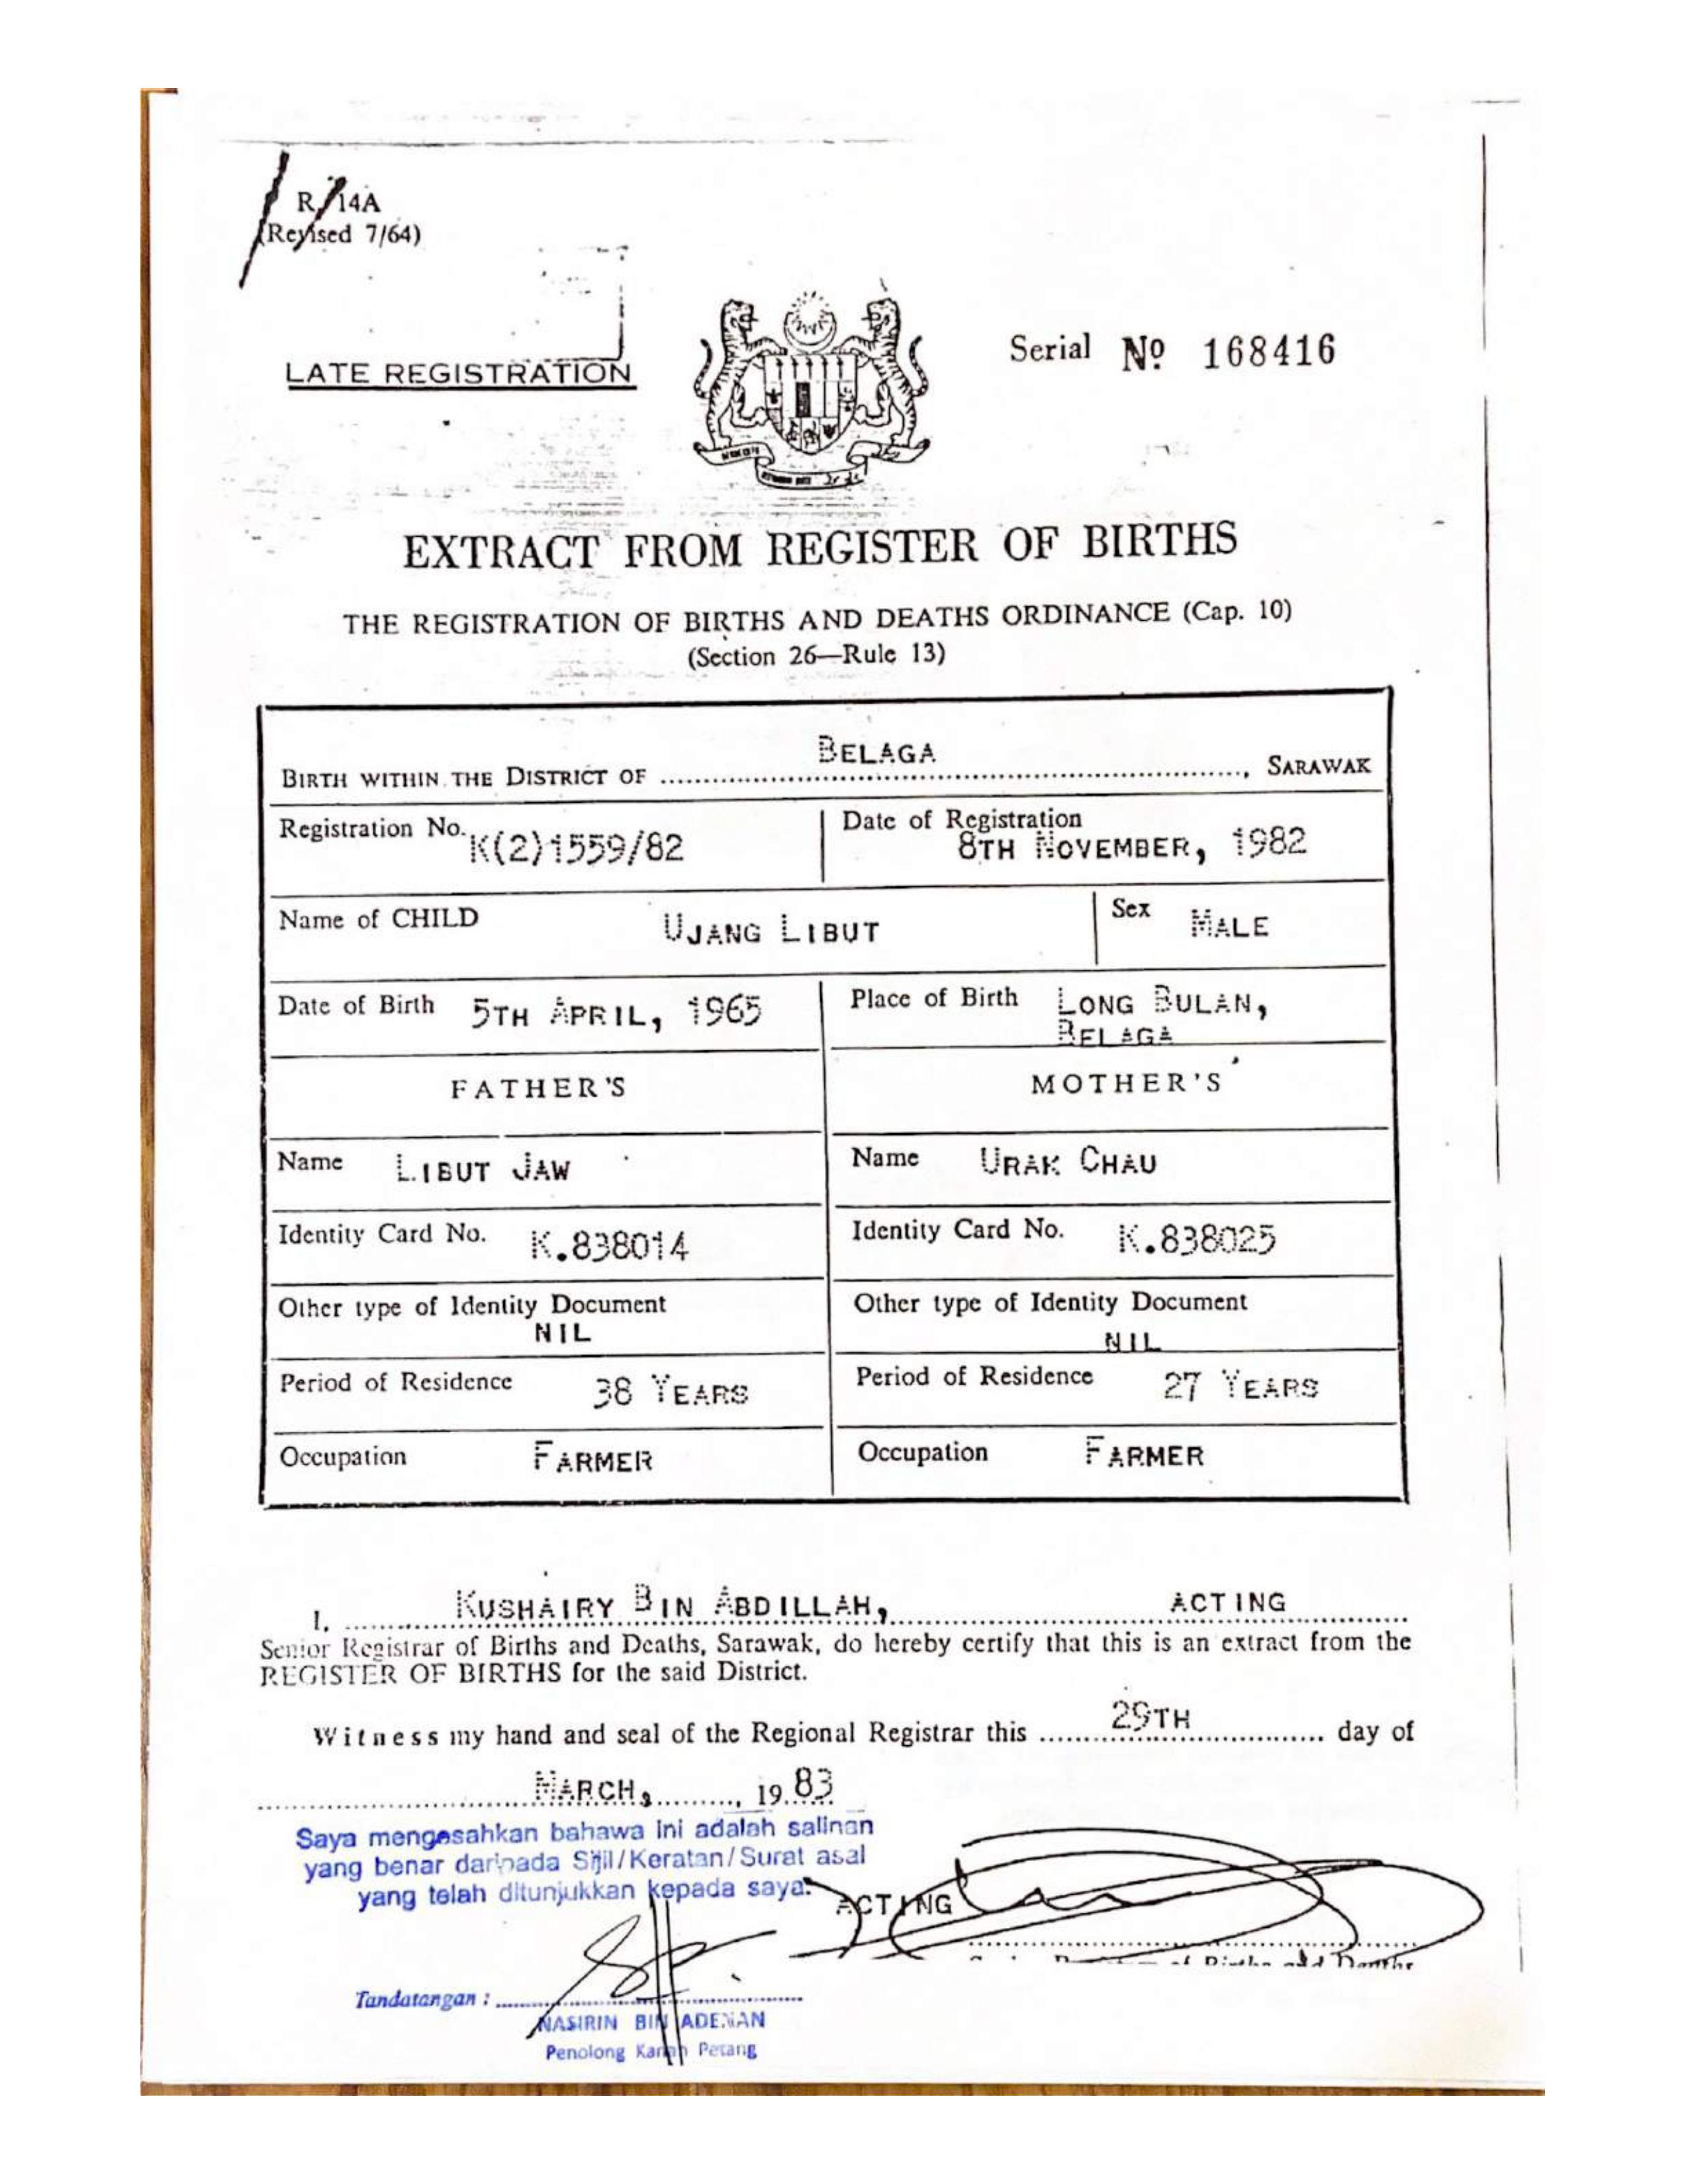 R/14A
(Revised 7/64)
LATE REGISTRATION
Serial Nº 168416
EXTRACT FROM REGISTER OF BIRTHS
THE REGISTRATION OF BIRTHS AND DEATHS ORDINANCE (Cap. 10)
(Section 26—Rule 13)
BIRTH WITHIN THE DISTRICT OF BELAGA, SARAWAK
Registration No. K(2)1559/82
Date of Registration
8TH NOVEMBER, 1982
Name of CHILD UJANG LIBUT
Sex MALE
Date of Birth 5TH APRIL, 1965
Place of Birth LONG BULAN,
BELAGA
FATHER'S
MOTHER'S
Name LIBUT JAW
Name URAK CHAU
Identity Card No. K.838014
Identity Card No. K.838025
Other type of Identity Document
NIL
Other type of Identity Document
NIL
Period of Residence 38 YEARS
Period of Residence 27 YEARS
Occupation FARMER
Occupation FARMER
I, KUSHAIRY BIN ABDILLAH, ACTING
Senior Registrar of Births and Deaths, Sarawak, do hereby certify that this is an extract from the
REGISTER OF BIRTHS for the said District.
Witness my hand and seal of the Regional Registrar this 29TH day of
MARCH, 1983
Saya mengesahkan bahawa ini adalah salinan
yang benar daripada Sijil/Keratan/Surat asal
yang telah ditunjukkan kepada saya.
ACTING
of Births and Deaths
Tandatangan :
NASIRIN BIN ADENAN
Penolong Petang